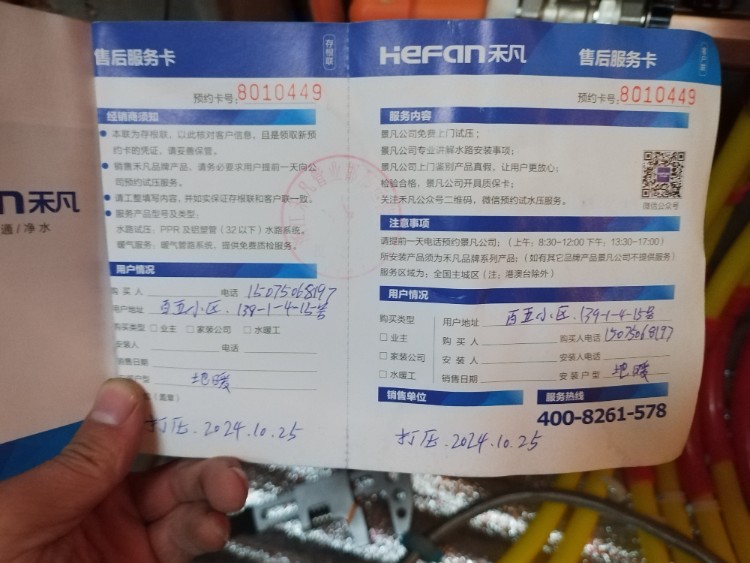 n禾凡
通/净水
售后服务卡
存根联
预约卡号:8010449
经销商须知
本联为存根联，以此核对客户信息，且是领取新预
约卡的凭证，请妥善保管。
销售禾凡品牌产品，请务必要求用户提前一天向公
司预约试压服务。
请工整填写内容，并如实保证存根联和客户联一致。
服务产品型号及类型:
水路试压: PPR 及铝塑管（32 以下）水路系统。
暖气服务: 暖气管路系统，提供免费质检服务。
用户情况
购买人 电话 15075068197
用户地址 百五小区. 139-1-4-15号
购买类型 □ 业主 □ 家装公司 □ 水暖工
安装人 电话
销售日期
户型 地暖
(盖章)
打压. 2024.10.25
HeFan禾凡
售后服务卡
客户联
预约卡号:8010449
服务内容
景凡公司免费上门试压；
景凡公司专业讲解水路安装事项；
景凡公司上门鉴别产品真假，让用户更放心；
检验合格，景凡公司开具质保卡；
关注禾凡公众号二维码，微信预约试水压服务。
微信公众号
注意事项
请提前一天电话预约景凡公司；（上午: 8:30-12:00 下午: 13:30-17:00）
所安装产品须为禾凡品牌系列产品；（如有其它品牌产品景凡公司不提供服务）
服务区域为: 全国主城区（注: 港澳台除外）
用户情况
购买类型 用户地址 百五小区. 139-1-4-15号
□ 业主 购买人 购买人电话 15075068197
□ 家装公司 安装人 安装人电话
□ 水暖工 销售日期 安装户型 地暖
销售单位
服务热线
400-8261-578
打压. 2024.10.25